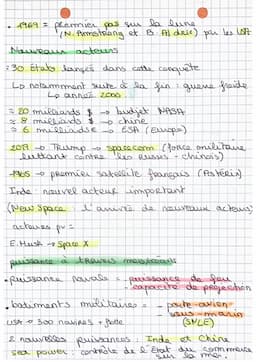 . 1969 = premier pas sur la lune
(N. Armstrong et B. Aldric) par les USA
Nouveaux acteurs
≈ 30 Etats lancés dans cette conquête
↳ notamment suite à la fin : guerre froide
↳ année 2000
≈ 20 milliards $ → budget NASA
≈ 8 milliards $ → chine
≈ 6 milliards € → ESA (Europe)
2019 → Trump → spacecom (force militaire
luttant contre les russes - chinois)
1965 → premier satellite français (Astérix)
Inde nouvel acteur important
(New Space : L'arrivée de nouveaux acteurs)
acteurs pv =
E. Musk → Space X
puissance à travers
. puissance navale = - puissance de feu
- capacité de projection
. batiments militaires = - porte avion
- sous-marin
USA → 300 navires - flotte (SNLE)
2 nouvelles puissances : Inde et Chine
sea power : contrôle de l'État du commerce
sur la mer.